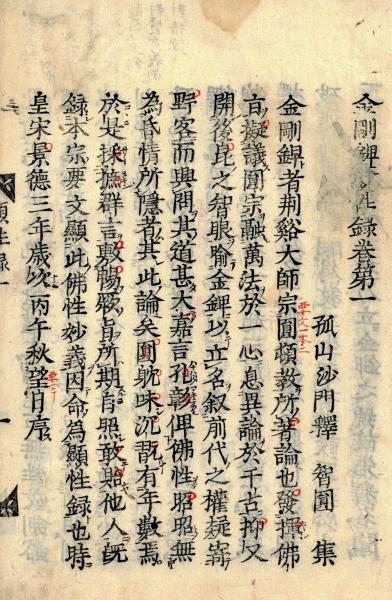 金剛錍顯性錄卷第一
孤山沙門釋 智圓 集
金剛錍者荆谿大師宗圓頓教所著論也發揮佛
言擬議圓宗融萬法於一心息異論於千古抑又
開後昆之智眼喻金錍以立名叙前代之權疑寄
野客而興問其道甚大嘉言孔彰俾佛性昭昭無
為昏情所隱者其此論矣圓躭味沉翫有年數焉
於是採摭群言敷暢厥旨所期自照敢貽他人既
録本宗要文顯此佛性妙義因命為顯性錄也時
皇宋景德三年歲次丙午秋望月序
顯性錄一
一